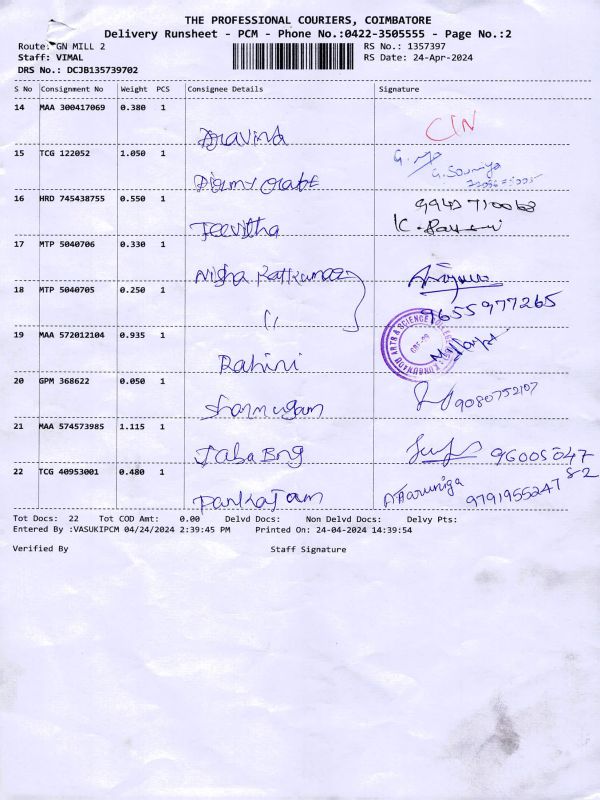 THE PROFESSIONAL COURIERS, COIMBATORE
Delivery Runsheet - PCM - Phone No.:0422-3505555 - Page No.:2
Route: GN MILL 2 RS No.: 1357397
Staff: VIMAL RS Date: 24-Apr-2024
DRS No.: DCJB135739702
S No Consignment No Weight PCS Consignee Details Signature
14 MAA 300417069 0.380 1
Aravind CIN
15 TCG 122052 1.050 1
G. Sowmiya
16 HRD 745438755 0.550 1
Jeevitha
17 MTP 5040706 0.330 1
Nisha Rajkumar
18 MTP 5040705 0.250 1
9655977265
19 MAA 572012104 0.935 1
ARTS & SCIENCE
Rahini
20 GPM 368622 0.050 1
Shanmugam 9080752107
21 MAA 574573985 1.115 1
96005047
22 TCG 40953001 0.480 1 82
Pankajam 9791955247
Tot Docs: 22 Tot COD Amt: 0.00 Delvd Docs: Non Delvd Docs: Delvy Pts:
Entered By :VASUKIPCM 04/24/2024 2:39:45 PM Printed On: 24-04-2024 14:39:54
Verified By Staff Signature